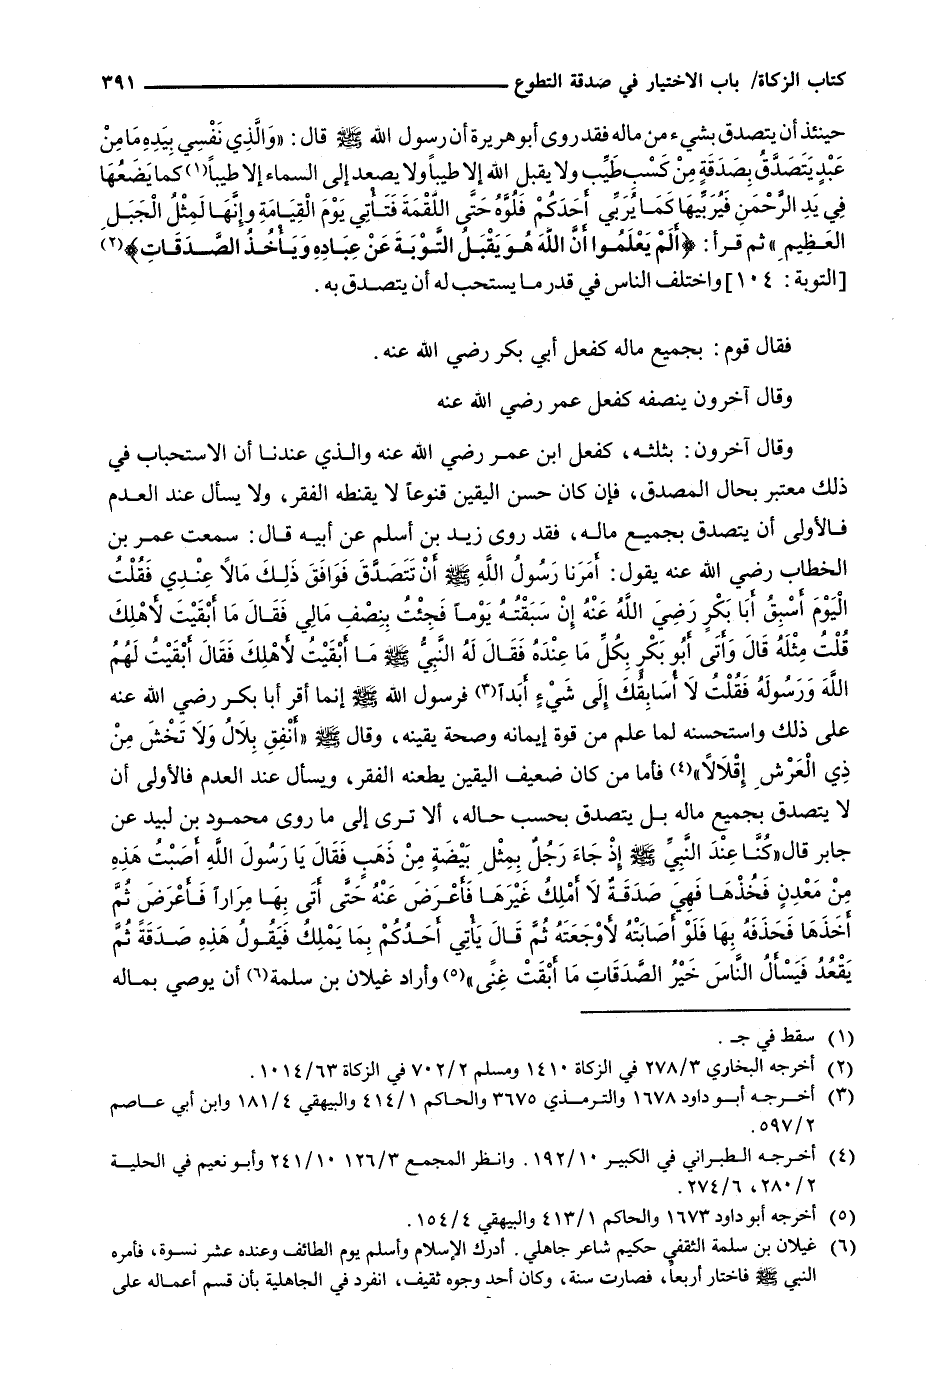 كتاب الزكاة/ باب الاختيار في صدقة التطوع ٣٩١
حينئذ أن يتصدق بشيء من ماله فقد روى أبو هريرة أن رسول الله ﷺ قال: «وَالَّذِي نَفْسِي بِيَدِهِ مَا مِنْ
عَبْدٍ يَتَصَدَّقُ بِصَدَقَةٍ مِنْ كَسْبٍ طَيِّبٍ ولا يقبل الله إلا طيباً ولا يصعد إلى السماء إلا طيباً(١) كما يَضَعُهَا
فِي يَدِ الرَّحْمَنِ فَيُرَبِّيهَا كَمَا يُرَبِّي أَحَدَكُمْ فَلُوَّهُ حَتَّى اللُّقْمَةَ فَتَأْتِي يَوْمَ الْقِيَامَةِ وإِنَّهَا لَمِثْلُ الْجَبَلِ
العَظِيمِ» ثم قرأ: ﴿أَلَمْ يَعْلَمُوا أَنَّ اللهَ هُوَ يَقْبَلُ التَّوْبَةَ عَنْ عِبَادِهِ وَيَأْخُذُ الصَّدَقَاتِ﴾(٢)
[التوبة: ١٠٤] واختلف الناس في قدر ما يستحب له أن يتصدق به.
فقال قوم: بجميع ماله كفعل أبي بكر رضي الله عنه.
وقال آخرون ينصفه كفعل عمر رضي الله عنه
وقال آخرون: بثلثه، كفعل ابن عمر رضي الله عنه والذي عندنا أن الاستحباب في
ذلك معتبر بحال المصدق، فإن كان حسن اليقين قنوعاً لا يقنطه الفقر، ولا يسأل عند العدم
فالأولى أن يتصدق بجميع ماله، فقد روى زيد بن أسلم عن أبيه قال: سمعت عمر بن
الخطاب رضي الله عنه يقول: أَمَرَنَا رَسُولُ اللَّهِ ﷺ أَنْ نَتَصَدَّقَ فَوَافَقَ ذَلِكَ مَالاً عِنْدِي فَقُلْتُ
الْيَوْمَ أَسْبِقُ أَبَا بَكْرٍ رَضِيَ اللَّهُ عَنْهُ إِنْ سَبَقْتُهُ يَوْماً فَجِئْتُ بِنِصْفِ مَالِي فَقَالَ مَا أَبْقَيْتَ لأَهْلِكَ
قُلْتُ مِثْلَهُ قَالَ وَأَتَى أَبُو بَكْرٍ بِكُلِّ مَا عِنْدَهُ فَقَالَ لَهُ النَّبِيُّ ﷺ مَا أَبْقَيْتُ لأَهْلِكَ فَقَالَ أَبْقَيْتُ لَهُمُ
اللَّهَ وَرَسُولَهُ فَقُلْتُ لَا أُسَابِقُكَ إِلَى شَيْءٍ أَبَداً(٣) فرسول الله ﷺ إنما أقر أبا بكر رضي الله عنه
على ذلك واستحسنه لما علم من قوة إيمانه وصحة يقينه، وقال ﷺ «أَنْفِقِ بِلاَلُ وَلَا تَخْشَ مِنْ
ذِي الْعَرْشِ إِقْلَالاً»(٤) فأما من كان ضعيف اليقين يطعنه الفقر، ويسأل عند العدم فالأولى أن
لا يتصدق بجميع ماله بل يتصدق بحسب حاله، ألا ترى إلى ما روى محمود بن لبيد عن
جابر قال «كُنَّا عِنْدَ النَّبِيِّ ﷺ إِذْ جَاءَ رَجُلٌ بِمِثْلِ بَيْضَةٍ مِنْ ذَهَبٍ فَقَالَ يَا رَسُولَ اللَّهِ أَصَبْتُ هَذِهِ
مِنْ مَعْدِنٍ فَخُذْهَا فَهِيَ صَدَقَةٌ لَا أَمْلِكُ غَيْرَهَا فَأَعْرَضَ عَنْهُ حَتَّى أَتَى بِهَا مِرَاراً فَأَعْرَضَ ثُمَّ
أَخَذَهَا فَحَذَفَهُ بِهَا فَلَوْ أَصَابَتْهُ لأَوْجَعَتْهُ ثُمَّ قَالَ يَأْتِي أَحَدُكُمْ بِمَا يَمْلِكُ فَيَقُولُ هَذِهِ صَدَقَةً ثُمَّ
يَقْعُدُ فَيَسْأَلُ النَّاسَ خَيْرُ الصَّدَقَاتِ مَا أَبْقَتْ غِنًى»(٥) وأراد غيلان بن سلمة(٦) أن يوصي بماله
(١) سقط في جـ.
(٢) أخرجه البخاري ٢٧٨/٣ في الزكاة ١٤١٠ ومسلم ٧٠٢/٢ في الزكاة ١٠١٤/٦٣.
(٣) أخرجه أبو داود ١٦٧٨ والترمذي ٣٦٧٥ والحاكم ٤١٤/١ والبيهقي ١٨١/٤ وابن أبي عاصم
٥٩٧/٢.
(٤) أخرجه الطبراني في الكبير ١٩٢/١٠. وانظر المجمع ١٢٦/٣ ٢٤١/١٠ وأبو نعيم في الحلية
٢٨٠/٢، ٢٧٤/٦.
(٥) أخرجه أبو داود ١٦٧٣ والحاكم ٤١٣/١ والبيهقي ١٥٤/٤.
(٦) غيلان بن سلمة الثقفي حكيم شاعر جاهلي. أدرك الإسلام وأسلم يوم الطائف وعنده عشر نسوة، فأمره
النبي ﷺ فاختار أربعاً، فصارت سنة، وكان أحد وجوه ثقيف، انفرد في الجاهلية بأن قسم أعماله على